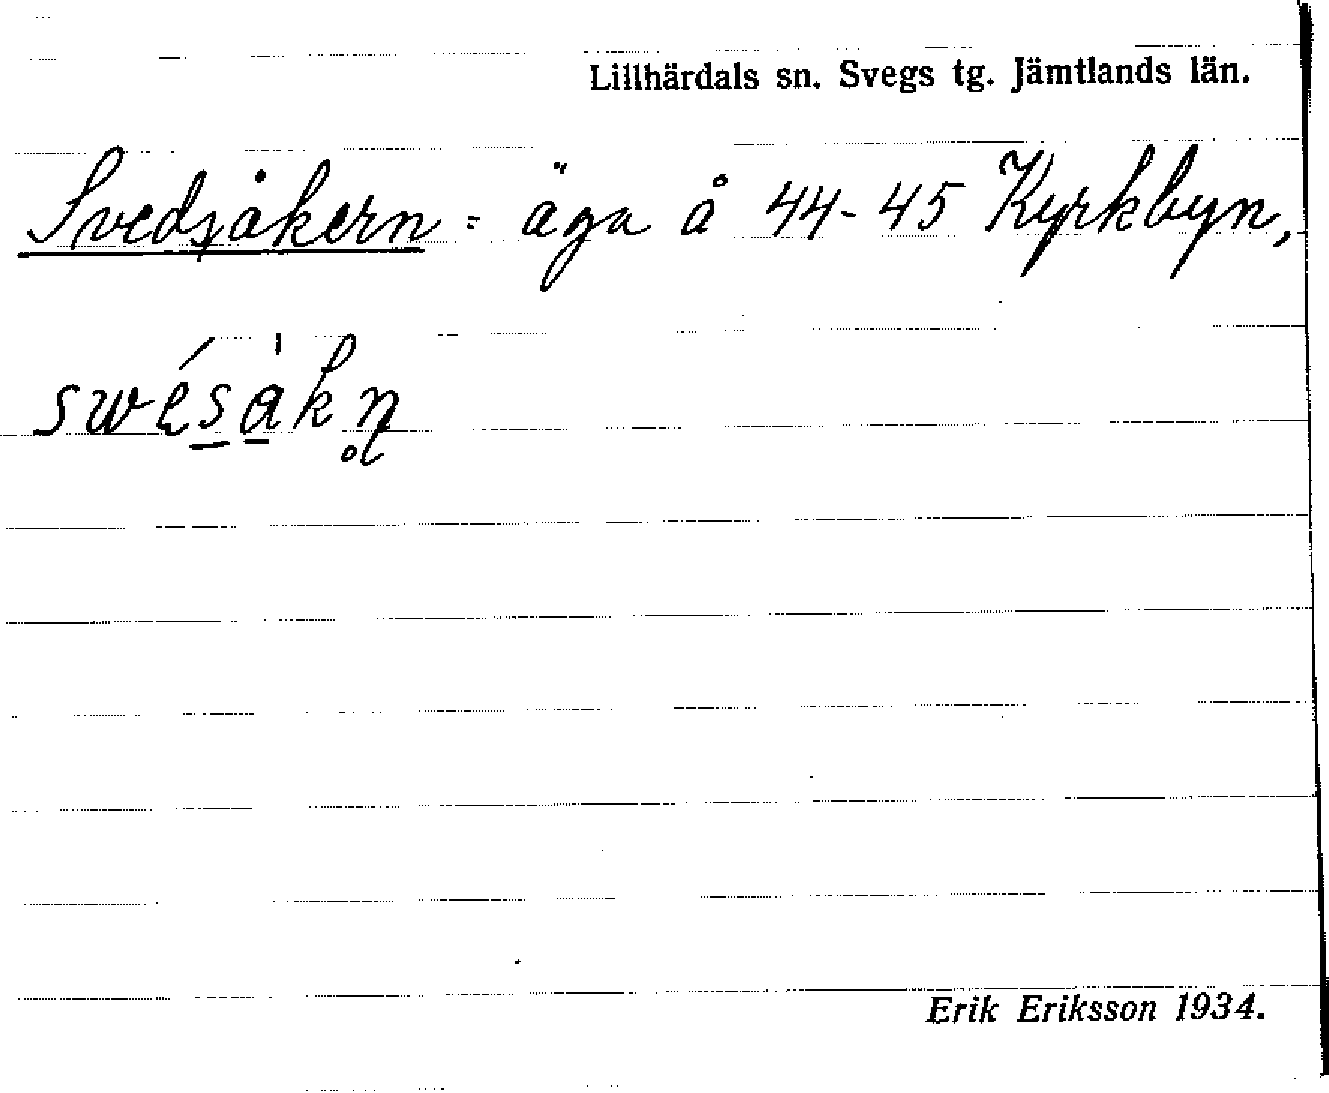 Lillhärdals sn. Svegs tg. Jämtlands län.
Svedjåkern = äga å 44-45 Kyrkbyn,
Erik Eriksson 1934.